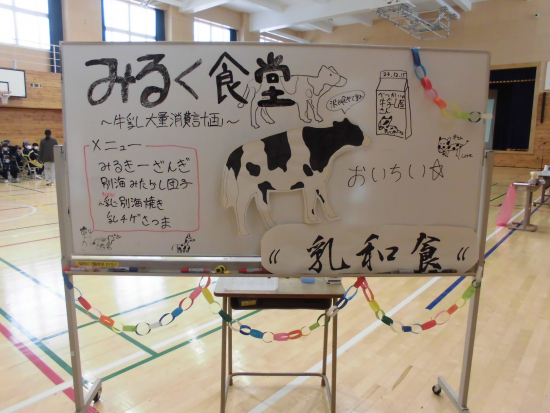 みるく食堂
～牛乳大量消費計画～
メニュー
みるきーざんぎ
別海みたらし団子
乳別海焼き
乳チゲさつま
牛乳屋
さん
おいちい☆
"乳和食"